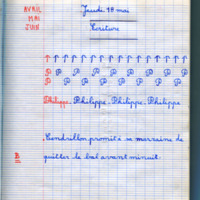 AVRIL
MAI
JUIN
Jeudi 18 mai
Ecriture
P P P P P P P P
P P P P P P P
Philippe. Philippe. Philippe. Philippe
Cendrillon promit à sa marraine de
quitter le bal avant minuit.
B